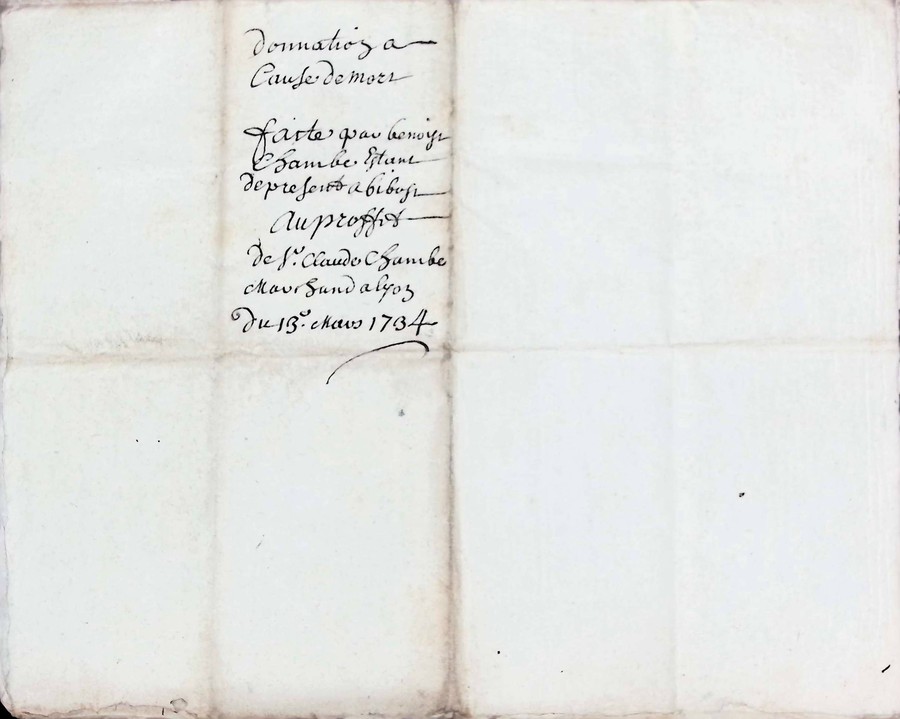 Donnation a
Cause de mort
faitte par benoist
Chambe Estant
de present a bibost
Au proffit
De Sr. Claude Chambe
Marchand a lyon
Du 13e. Mars 1734